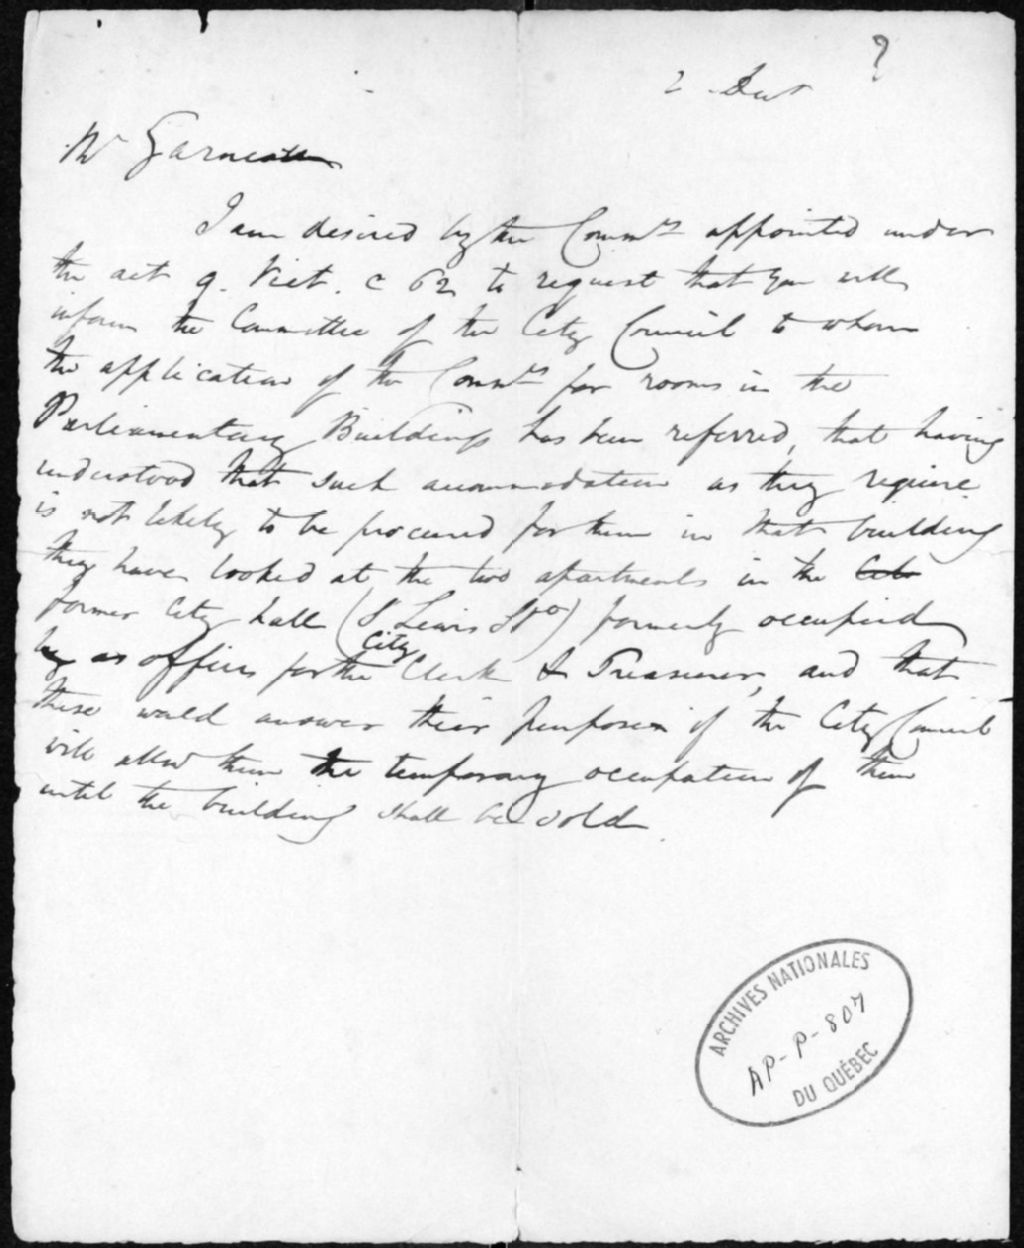 ?
2
Mr Garneau
I am desired by the Commrs appointed under
the act 9. Vict. c 62 to request that you will
inform the Committee of the City Council to whom
the application of the Commrs for rooms in the
Parliamentary Buildings has been referred, that having
understood that such accommodation as they require
is not likely to be procured for them in that building
they have looked at the two apartments in the
former City hall (S Lewis Sto) formerly occupied
as offices for the City Clerk & Treasurer, and that
these would answer their purpose if the City Council
will allow them the temporary occupation of them
until the building shall be sold
ARCHIVES NATIONALES
AP-P-807
DU QUÉBEC